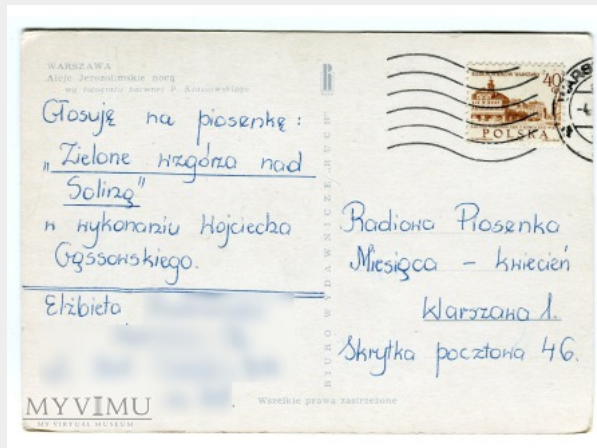 WARSZAWA
Aleje Jerozolimskie nocą
wg fotografii barwnej P. Krassowskiego
Głosuję na piosenkę:
"Zielone wzgórza nad
Soliną"
w wykonaniu Wojciecha
Gąssowskiego.
Elżbieta
BIURO WYDAWNICZE „RUCH"
40
POLSKA
Radiowa Piosenka
Miesiąca – kwiecień
Warszawa 1.
Skrytka pocztowa 46.
Wszelkie prawa zastrzeżone
MYVIMU
MY VIRTUAL MUSEUM